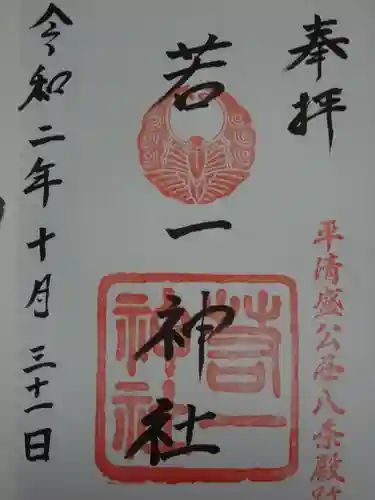 奉拝
平清盛公西八条殿跡
若一神社
若一神社
令和二年十月三十一日